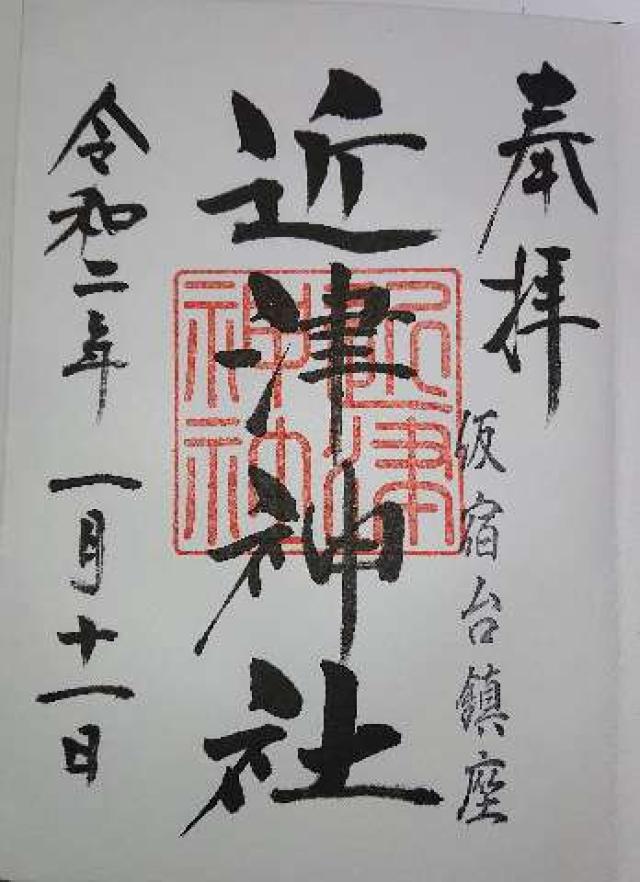 奉拝
仮宿台鎮座
近津神社
近津神社
令和二年一月十一日